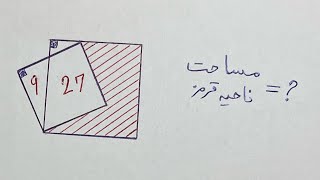 9 27
مساحت
ناحیه قرمز = ?